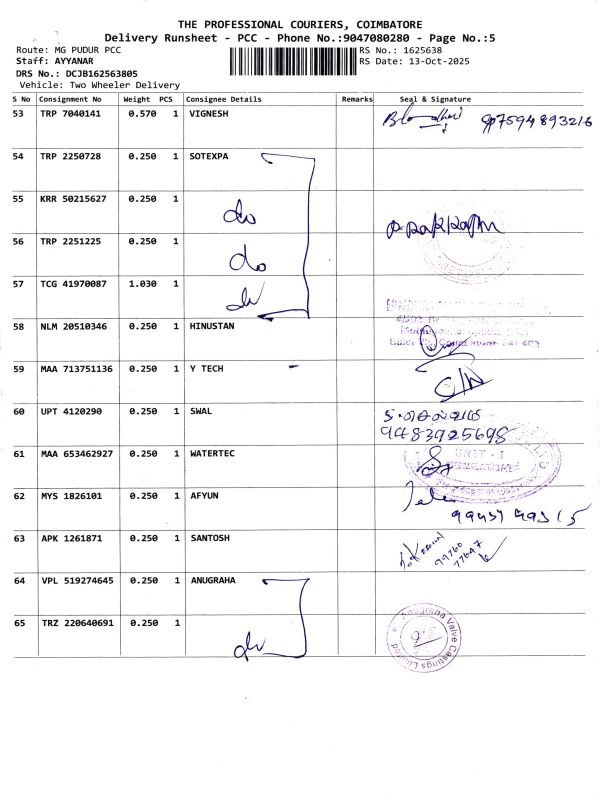 THE PROFESSIONAL COURIERS, COIMBATORE
Delivery Runsheet - PCC - Phone No.:9047080280 - Page No.:5
Route: MG PUDUR PCC RS No.: 1625638
Staff: AYYANAR RS Date: 13-Oct-2025
DRS No.: DCJB162563805
Vehicle: Two Wheeler Delivery
S No Consignment No Weight PCS Consignee Details Remarks Seal & Signature
53 TRP 7040141 0.570 1 VIGNESH 9p7594893216
54 TRP 2250728 0.250 1 SOTEXPA
55 KRR 50215627 0.250 1 do
56 TRP 2251225 0.250 1 do
57 TCG 41970087 1.030 1 do
58 NLM 20510346 0.250 1 HINUSTAN
59 MAA 713751136 0.250 1 Y TECH
60 UPT 4120290 0.250 1 SWAL
9483925698
61 MAA 653462927 0.250 1 WATERTEC UNIT - I
62 MYS 1826101 0.250 1 AFYUN
63 APK 1261871 0.250 1 SANTOSH 99760 77647
64 VPL 519274645 0.250 1 ANUGRAHA
65 TRZ 220640691 0.250 1 do Anugraha Valve Castings Limited